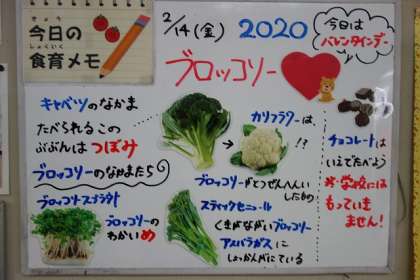 きょう
今日の
しょくいく
食育メモ
2/14(金) 2020
今日は
バレンタインデー
ブロッコリー
キャベツのなかま
たべられるこの
ぶぶんはつぼみ
ブロッコリーのなかまたち
ブロッコリースプラウト
ブロッコリーの
わかいめ
カリフラワーは、
!?
ブロッコリーがとつぜんへんい
したもの
スティックセニョール
くきがながいブロッコリー
アスパラガスに
しょっかんがにている
チョコレートは
いえでたべよう
学校には
もっていき
ません!